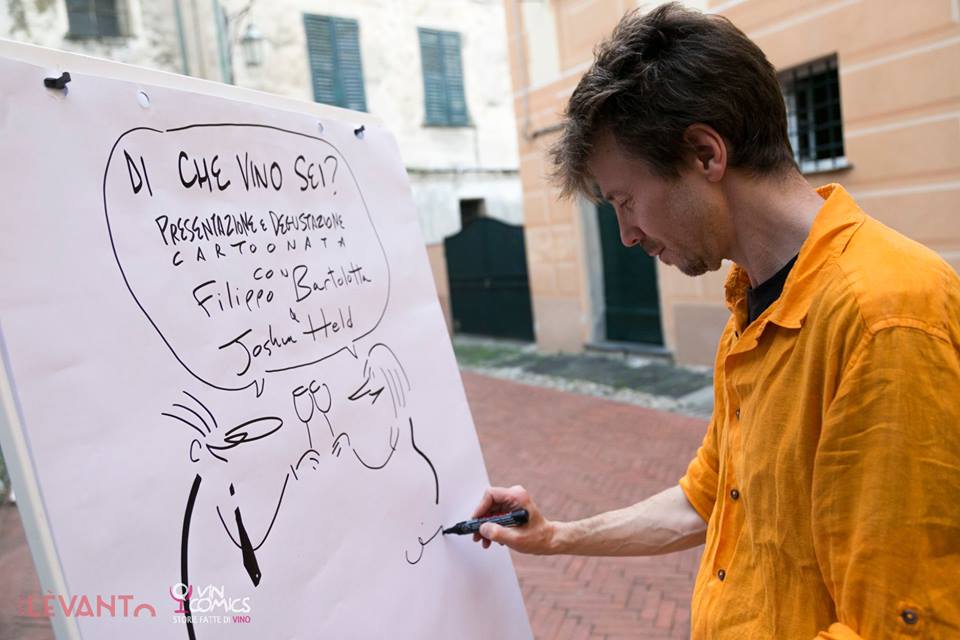 DI CHE VINO SEI?
PRESENTAZIONE E DEGUSTAZIONE
CARTOONATA
CON
Filippo Bartolotta
&
Joshua Held
LÈVANTO
VIN
COMICS
STORIE FATTE DI VINO